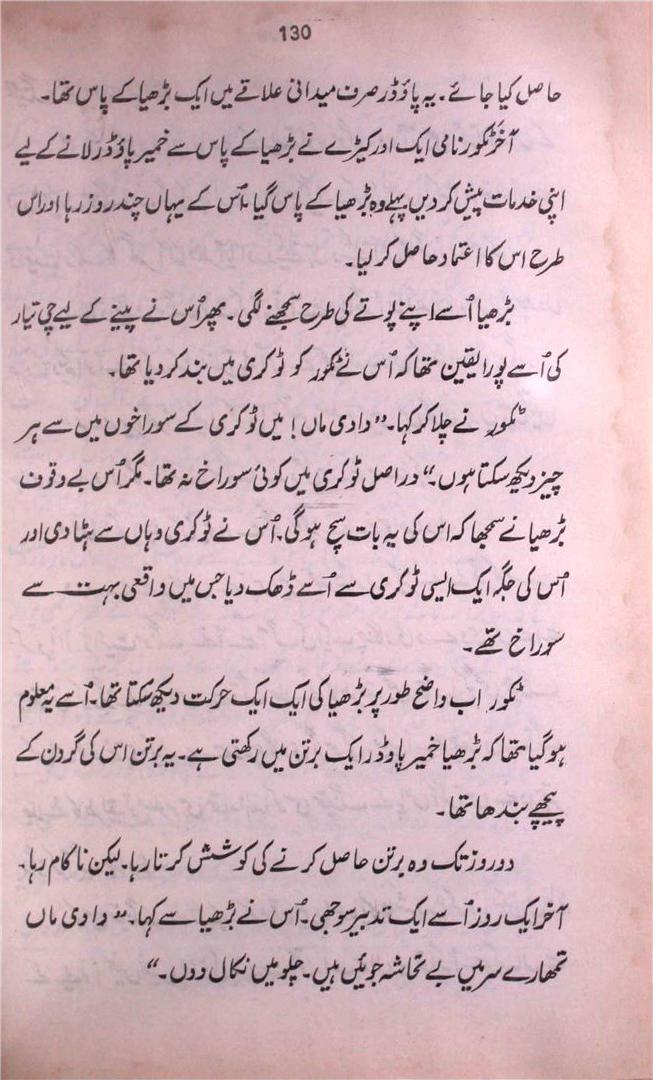 130
حاصل کیا جائے۔ یہ پاؤڈر صرف میدانی علاقے میں ایک بڑھیا کے پاس تھا۔
آخر ٹکور نامی ایک اور کیڑے نے بڑھیا کے پاس سے خمیر پاؤڈر لانے کے لیے
اپنی خدمات پیش کر دیں پہلے وہ بڑھیا کے پاس گیا۔ اُس کے یہاں چند روز رہا اور اس
طرح اس کا اعتماد حاصل کر لیا۔
بڑھیا اُسے اپنے پوتے کی طرح سمجھنے لگی۔ پھر اُس نے پینے کے لیے چی تیار
کی اُسے پورا یقین تھا کہ اُس نے ٹکور کو ٹوکری میں بند کر دیا تھا۔
ٹکور نے چلا کر کہا۔ ”دادی ماں! میں ٹوکری کے سوراخوں میں سے ہر
چیز دیکھ سکتا ہوں۔“ دراصل ٹوکری میں کوئی سوراخ نہ تھا۔ مگر اُس بے وقوف
بڑھیا نے سمجھا کہ اس کی یہ بات سچ ہو گی۔ اُس نے ٹوکری وہاں سے ہٹا دی اور
اُس کی جگہ ایک ایسی ٹوکری سے اُسے ڈھک دیا جس میں واقعی بہت سے
سوراخ تھے۔
ٹکور اب واضح طور پر بڑھیا کی ایک ایک حرکت دیکھ سکتا تھا۔ اُسے یہ معلوم
ہو گیا تھا کہ بڑھیا خمیر پاوڈر ایک برتن میں رکھتی ہے۔ یہ برتن اس کی گردن کے
پیچھے بندھا تھا۔
دو روز تک وہ برتن حاصل کرنے کی کوشش کرتا رہا۔ لیکن ناکام رہا۔
آخر ایک روز اُسے ایک تدبیر سوجھی۔ اُس نے بڑھیا سے کہا۔ ”دادی ماں
تمھارے سر میں بے تحاشہ جوئیں ہیں۔ چلو میں نکال دوں۔“